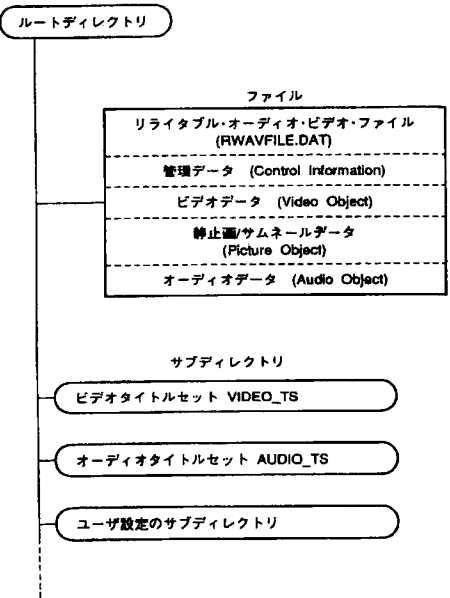 ルートディレクトリ
ファイル
リライタブル・オーディオ・ビデオ・ファイル
(RWAVFILE.DAT)
管理データ (Control Information)
ビデオデータ (Video Object)
静止画/サムネールデータ
(Picture Object)
オーディオデータ (Audio Object)
サブディレクトリ
ビデオタイトルセット VIDEO_TS
オーディオタイトルセット AUDIO_TS
ユーザ設定のサブディレクトリ